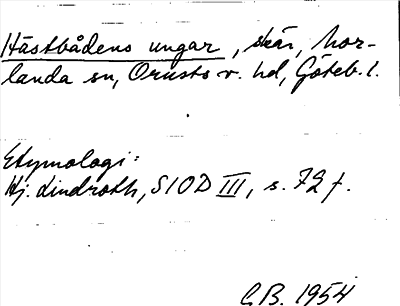 Hästbådens ungar, skär, Mor-
landa sn, Orusts v. hd, Göteb. l.
Etymologi:
Hj. Lindroth, SIOD III, s. 72 f.
C.B. 1954